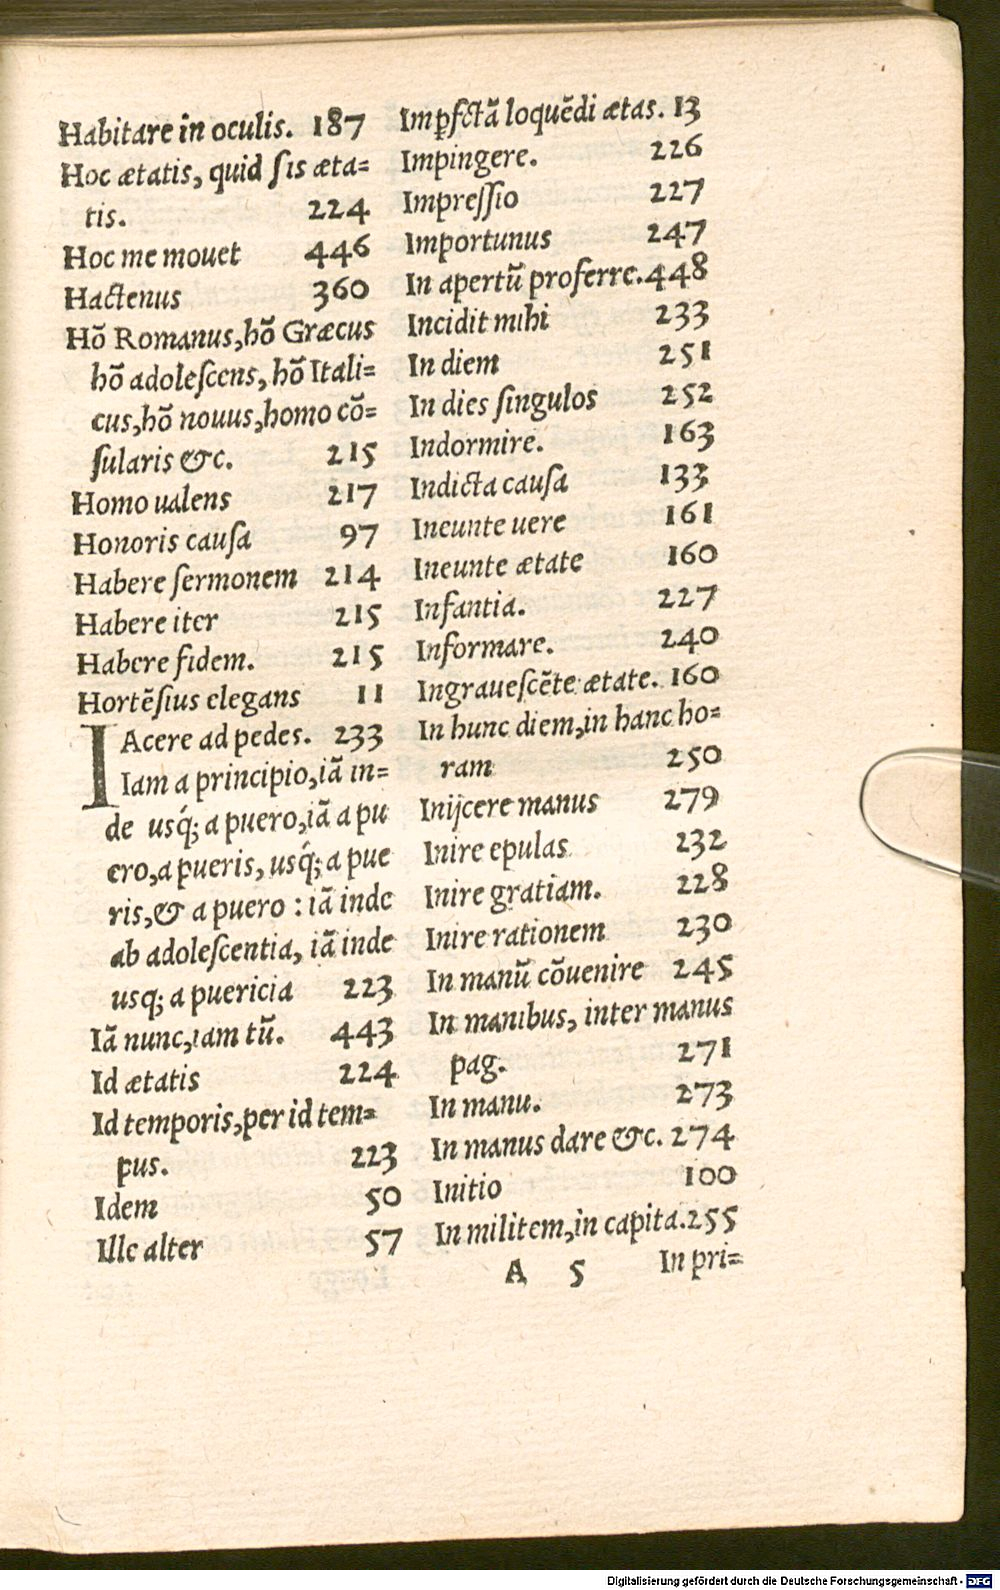 Habitare in oculis. 187
Hoc ætatis, quid ſis æta=
tis. 224
Hoc me mouet 446
Hactenus 360
Hõ Romanus,hõ Græcus
hõ adoleſcens, hõ Itali=
cus,hõ nouus,homo cõ=
ſularis &c. 215
Homo ualens 217
Honoris cauſa 97
Habere ſermonem 214
Habere iter 215
Habere fidem. 215
Hortẽſius elegans 11
IAcere ad pedes. 233
Iam a principio,iã in=
de usq́; a puero,iã a pu
ero,a pueris, usq́; a pue
ris,& a puero : iã inde
ab adoleſcentia, iã inde
usq; a puericia 223
Iã nunc,iam tũ. 443
Id ætatis 224
Id temporis,per id tem=
pus. 223
Idem 50
Ille alter 57
Imꝑfctã loquẽdi ætas. 13
Impingere. 226
Impreſſio 227
Importunus 247
In apertũ proferre.448
Incidit mihi 233
In diem 251
In dies ſingulos 252
Indormire. 163
Indicta cauſa 133
Ineunte uere 161
Ineunte ætate 160
Infantia. 227
Informare. 240
Ingraueſcẽte ætate. 160
In hunc diem,in hanc ho=
ram 250
Inijcere manus 279
Inire epulas 232
Inire gratiam. 228
Inire rationem 230
In manũ cõuenire 245
In manibus, inter manus
pag. 271
In manu. 273
In manus dare &c. 274
Initio 100
In militem,in capita.255
A 5 In pri=
Digitalisierung gefördert durch die Deutsche Forschungsgemeinschaft - DFG